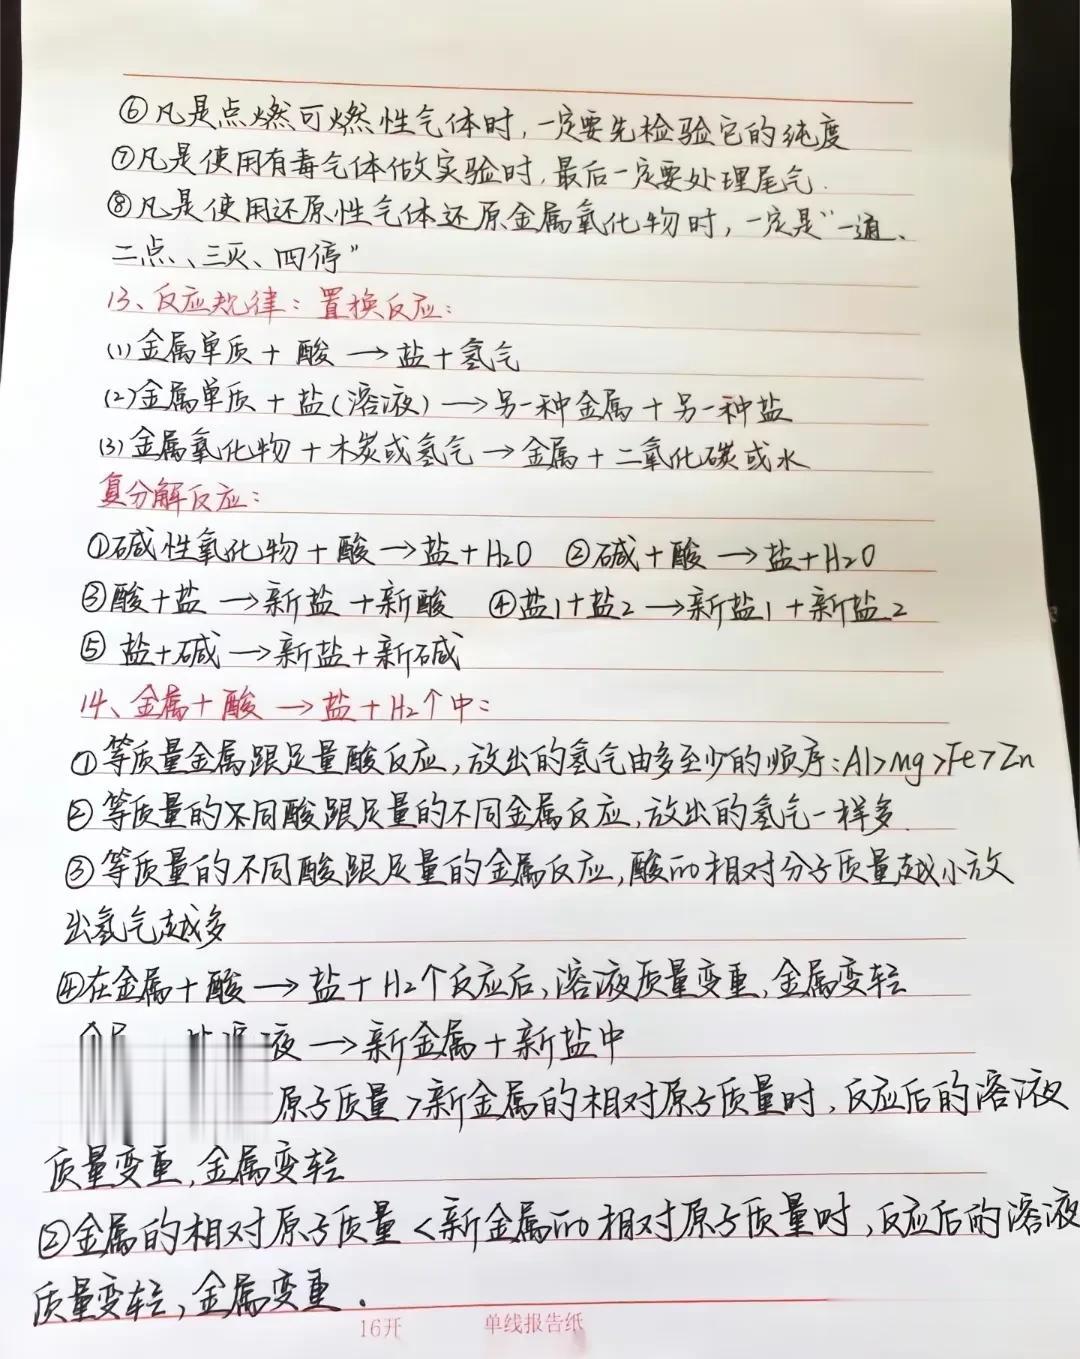 ⑥凡是点燃可燃性气体时,一定要先检验它的纯度
⑦凡是使用有毒气体做实验时,最后一定要处理尾气.
⑧凡是使用还原性气体还原金属氧化物时,一定是“一通、
二点、三灭、四停”
13、反应规律：置换反应：
(1)金属单质+酸→盐+氢气
(2)金属单质+盐(溶液)→另一种金属+另一种盐
(3)金属氧化物+木炭或氢气→金属+二氧化碳或水
复分解反应：
①碱性氧化物+酸→盐+H2O ②碱+酸→盐+H2O
③酸+盐→新盐+新酸 ④盐1+盐2→新盐1+新盐2
⑤盐+碱→新盐+新碱
14、金属+酸→盐+H2个中：
①等质量金属跟足量酸反应,放出的氢气由多至少的顺序:Al>Mg>Fe>Zn
②等质量的不同酸跟足量的不同金属反应,放出的氢气一样多.
③等质量的不同酸跟足量的金属反应,酸的相对分子质量越小放
出氢气越多
④在金属+酸→盐+H2个反应后,溶液质量变重,金属变轻
液→新金属+新盐中
原子质量>新金属的相对原子质量时,反应后的溶液
质量变重,金属变轻
②金属的相对原子质量<新金属的相对原子质量时,反应后的溶液
质量变轻,金属变重.
16开 单线报告纸